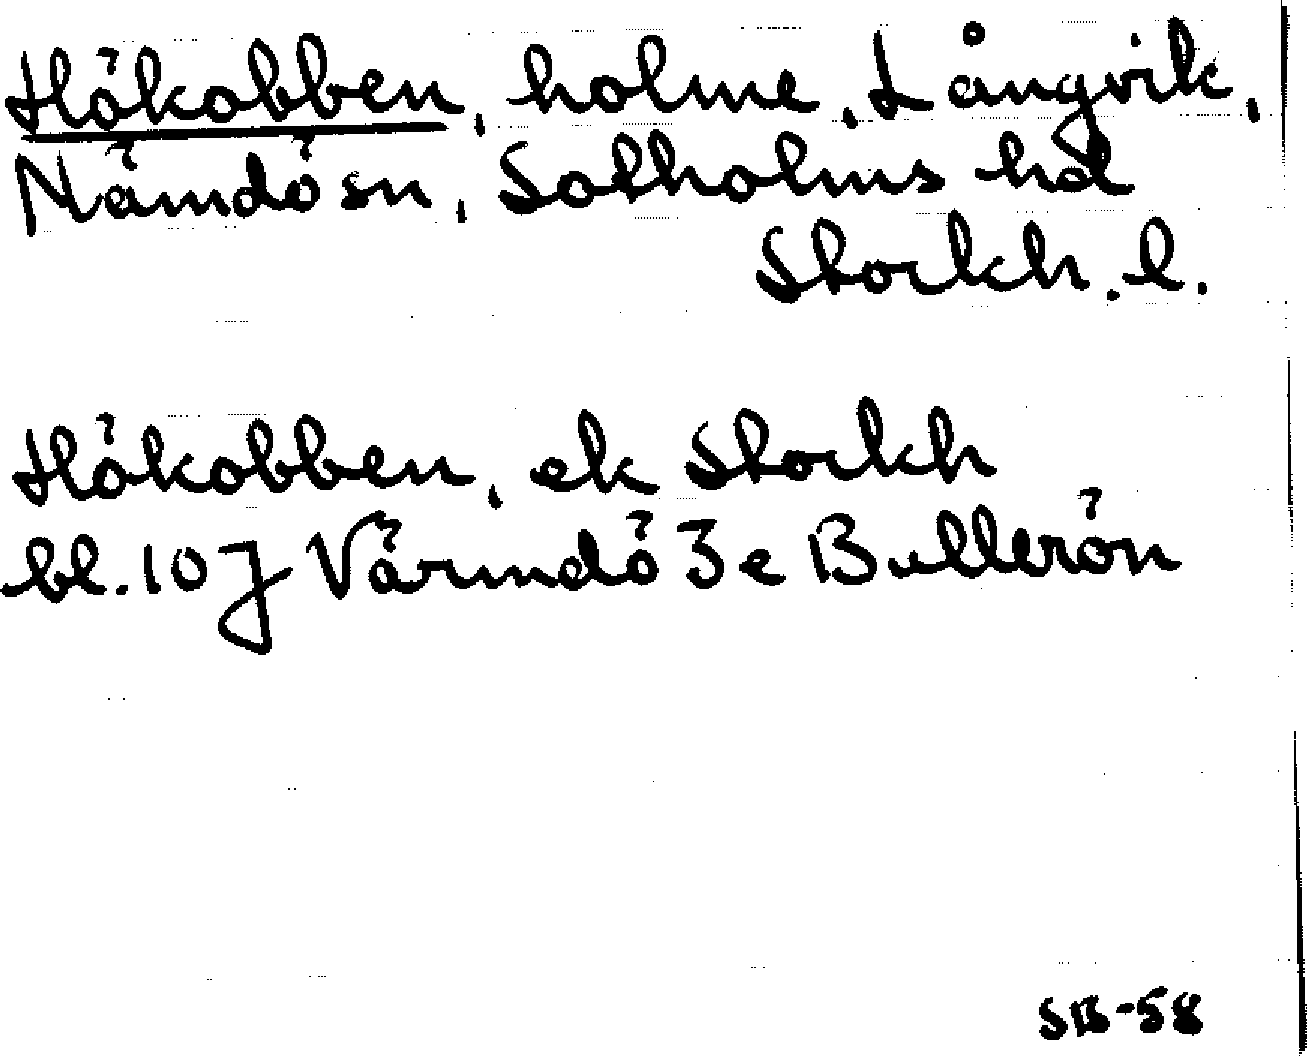 Hökobben, holme, Långvik,
Nämdö sn, Sotholms hd
Stockh. l.
Hökobben, ek Stockh
bl. 10 J Värmdö 3e Bullerön
SB-58